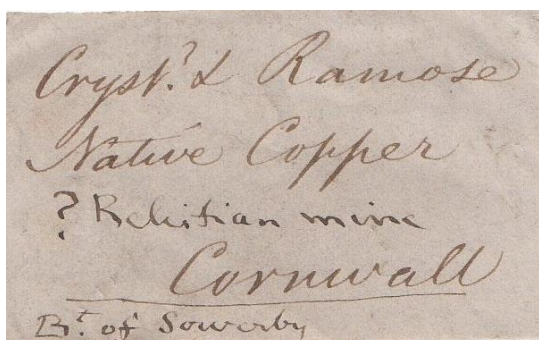 Cryst.d & Ramose
Native Copper
? Relistian mine
Cornwall
Bt. of Sowerby